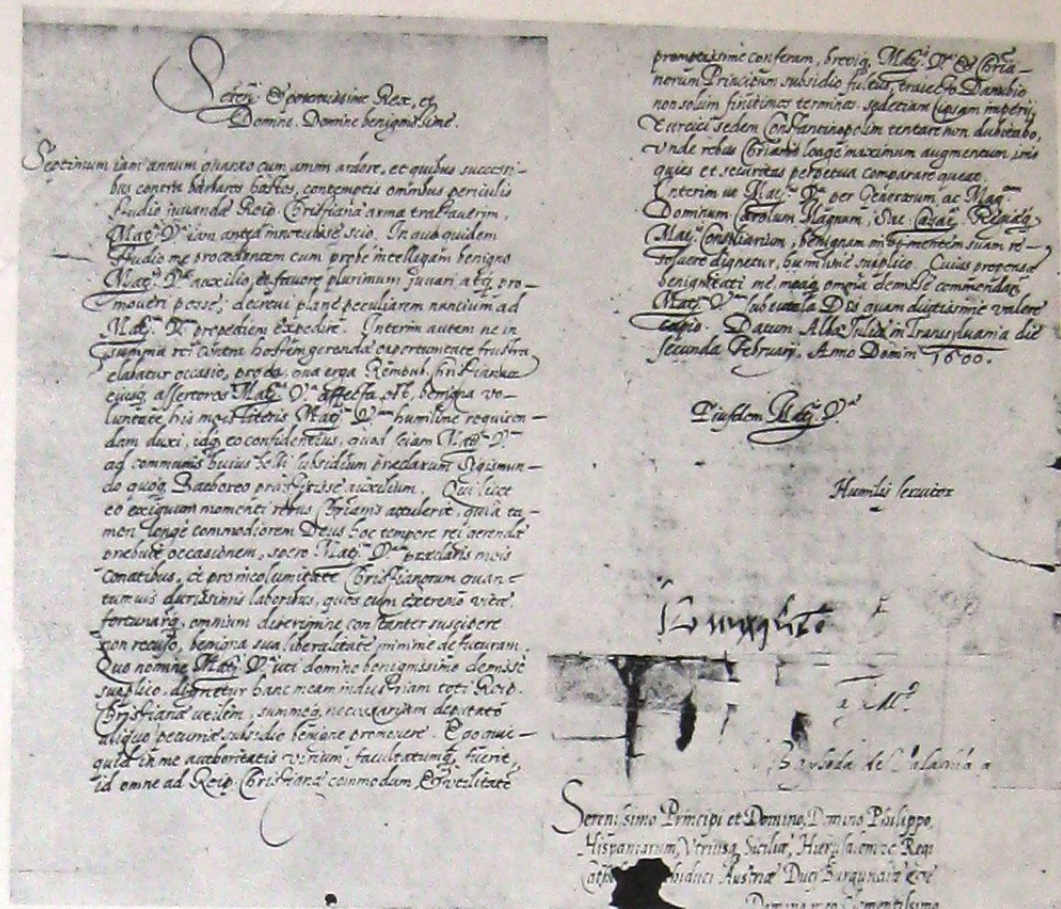 Seren: & potentissime Rex, et
Domine, Domine benignissime.
Septimum iam annum quanto cum animi ardore, et quibus successi-
bus contra barbaros hostes, contemptis omnibus periculis
studio iuvandæ Reip. Christianæ arma tractaverim,
Matj. V. iam antea innotuisse scio. In quo quidem
studio me procedentem cum probe intellegam benigno
Matj. V. auxilio, et favore plurimum juvari atq, pro-
moveri posse, decrevi plane peculiarem nuncium ad
Matj. V. propediem expedire. Interim autem ne in
summa rei contra hostem gerendæ oportunitate frustra
elabatur occasio, pro ea, qua erga Rempub. Christianam
eiusq, assertores Matj. V. affecta est, benigna vo-
luntate his meis literis Matj. V. humilime requiren-
dam duxi, idq, eo confidentius, quod sciam Matj. V.
ad communis huius belli subsidium præclarum Sigismun-
do quoq, Bathoreo præstitisse auxilium. Qui licet
eo exiguum momenti rebus Chrianis attulerit, quia ta-
men longe commodiorem Deus hoc tempore rei gerendæ
præbuit occasionem, spero Matj. V. præclaris meis
conatibus, et pro incolumitate Christianorum quan-
tumvis durissimis laboribus, quos cum extremo vitæ,
fortunarq, omnium discrimine constanter suscipere
non recuso, benigna sua liberalitate minime defuturam.
Quo nomine Matj. V. uti domino benignissimo demisse
supplico, dignetur hanc meam industriam toti Reip.
Christianæ utilem, summeq, necessariam deputato
aliquo pecuniæ subsidio benigne promovere. Ego quic-
quid in me authoritatis virium, facultatumq, fuerit,
id omne ad Reip. Christianæ commodum, & utilitatē
promptissime conferam, breviq, Matj. V. & Chria-
norum Principum subsidio fultus, traiecto Danubio
non solum finitimos terminos, sed etiam ipsam imperij
Turcici sedem Constantinopolim tentare non dubitabo,
unde rebus Chrianis longe maximum augmentum
quies et securitas perpetua comparari queat.
Interim ut Matj. V. per Generosum ac Mag.
Dominum Carolum Magnum, Sac. Cæsar. Regiæq,
Matj. Consiliarium, benignam mihi mentem suam re-
solvere dignetur, humilime supplico. Cuius propensæ
benignitati me, meaq, omnia demisse commendans
Matj. V. sub tutela Dei quam diutissime valere
cupio. Datum Alba Julia in Transylvania die
secunda February. Anno Domin 1600.
Eiusdem Matj. V.
Humilis servitor
a, M.
Serenissimo Principi et Domino, Domino Philippo,
Hispaniarum, Vtriusq, Siciliæ, Hierusalem &c Regi
Cath Archiduci Austriæ Duci Burgundiæ &c
Domino meo Clementissimo